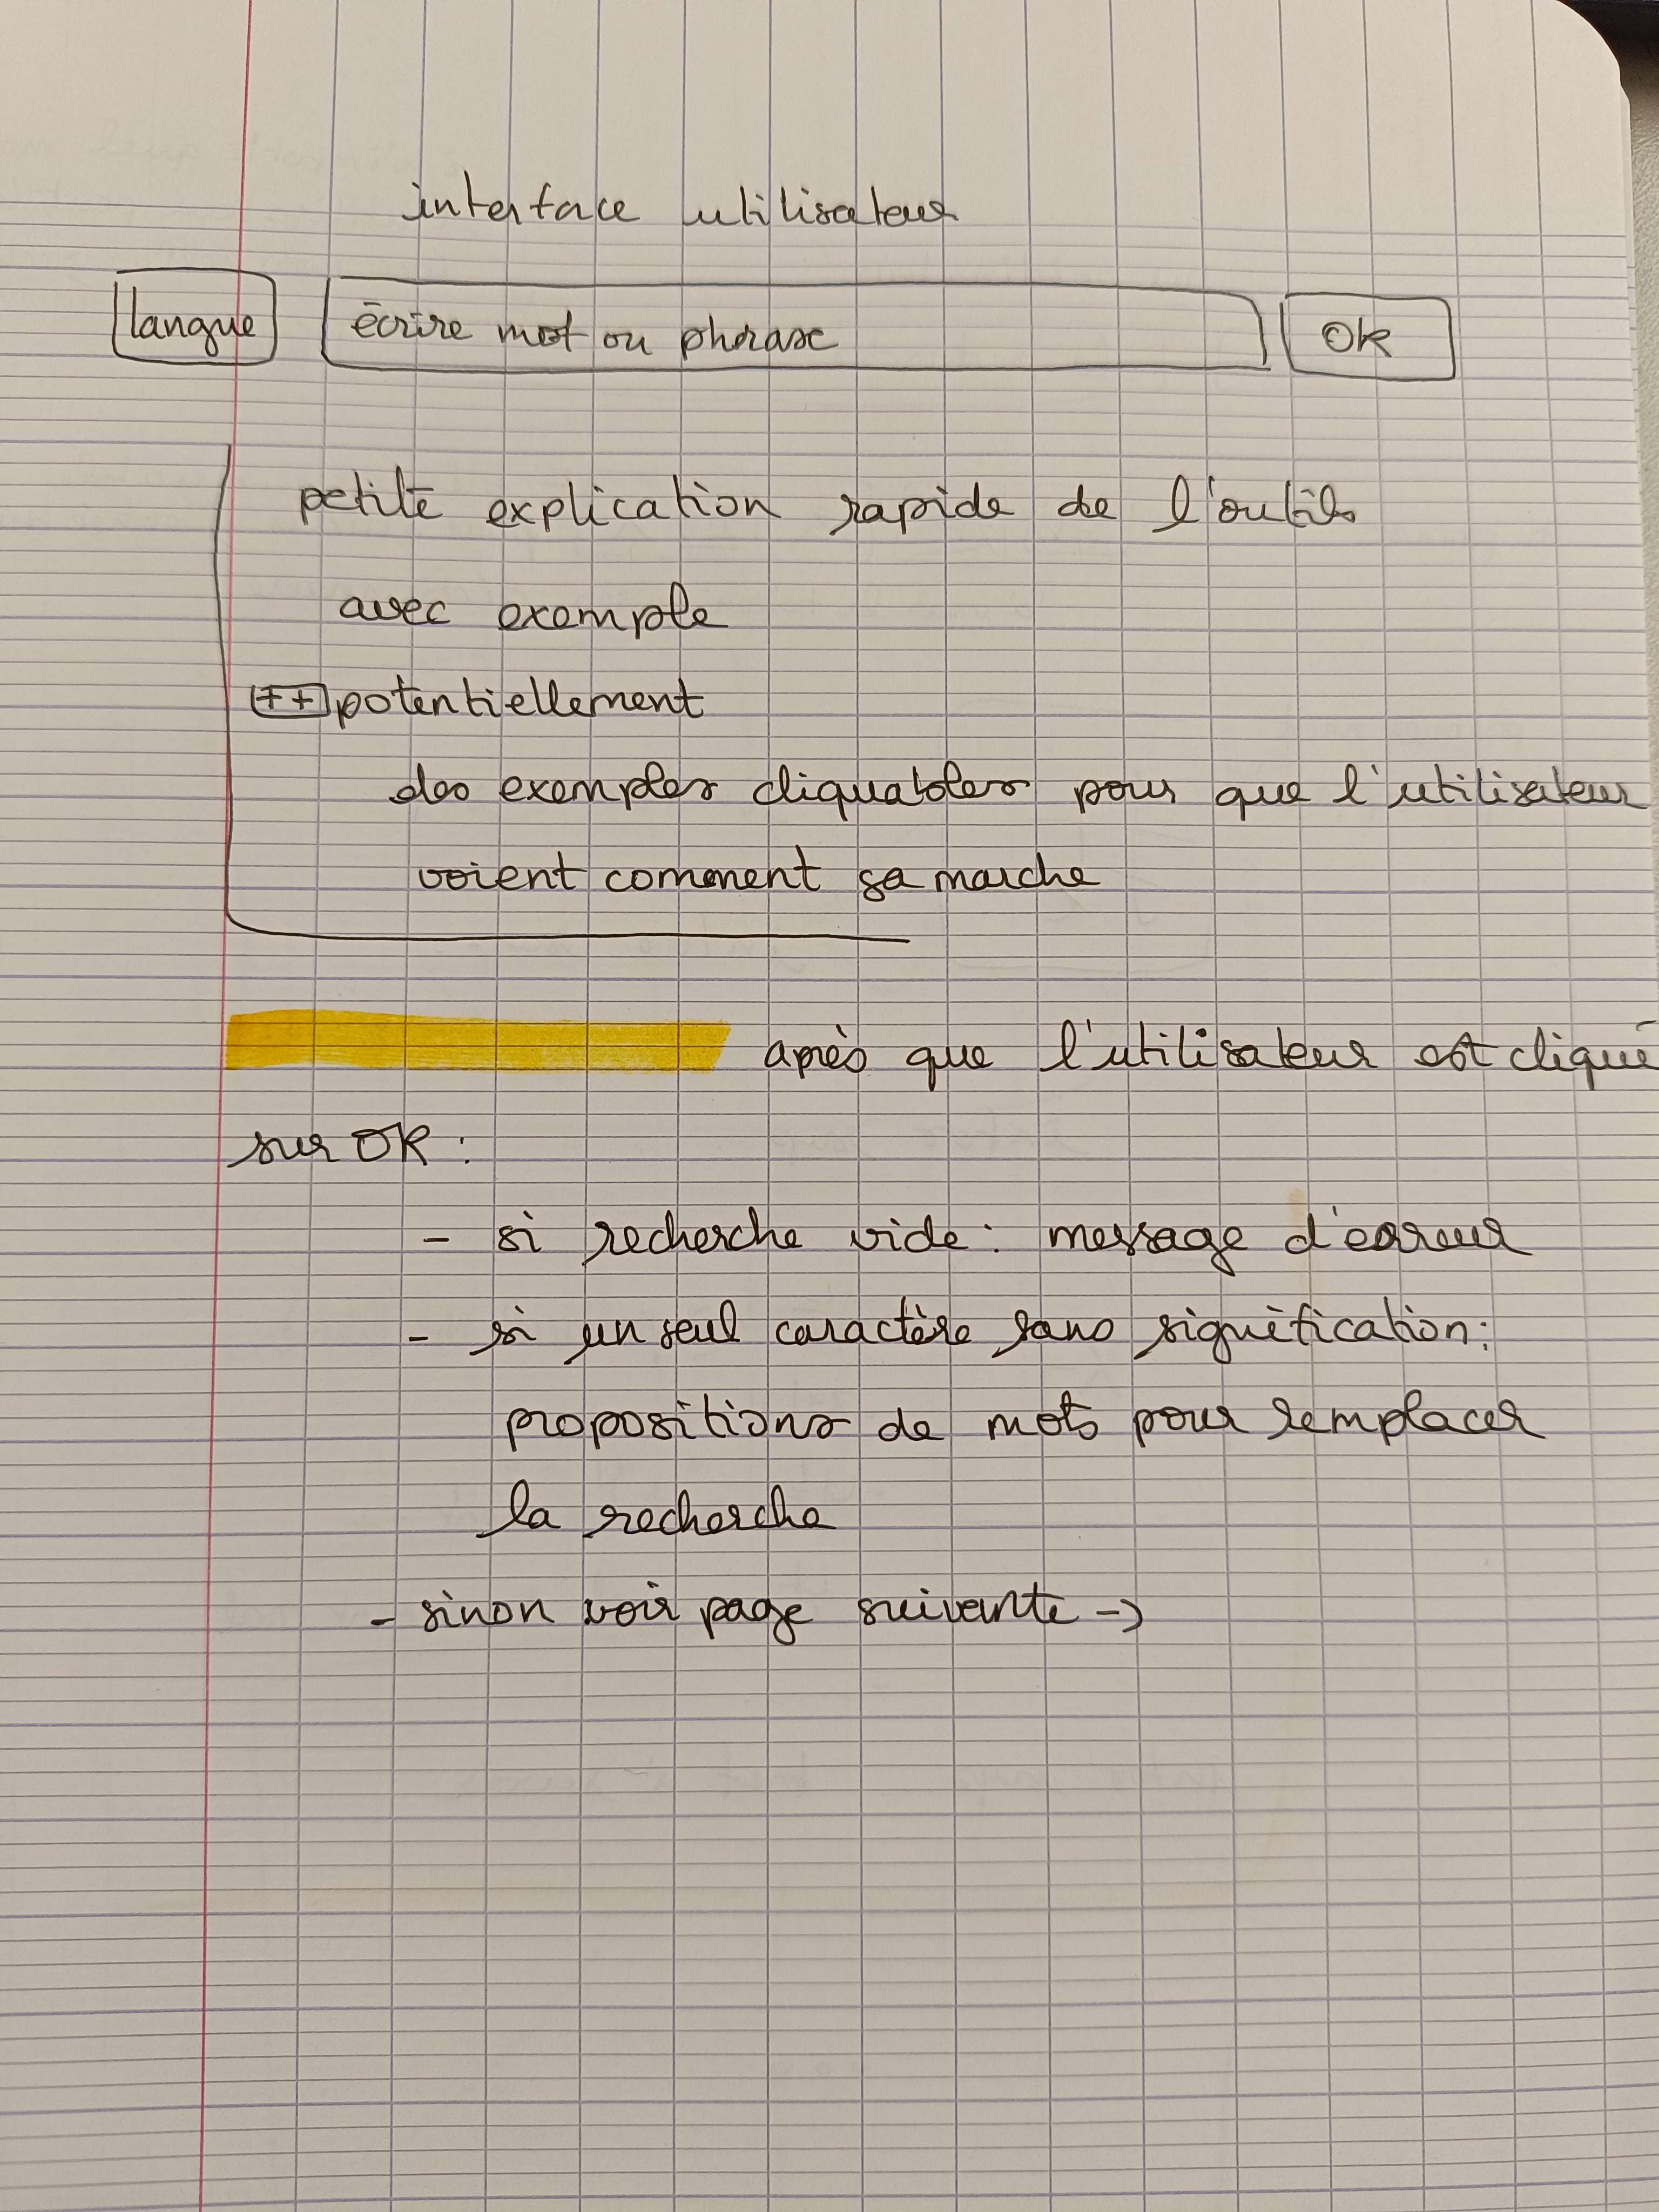 interface utilisateur
langue écrire mot ou phrase OK
petite explication rapide de l'outils
avec exemple
++ potentiellement
des exemples cliquables pour que l'utilisateur
voient comment sa marche
après que l'utilisateur est cliqué
sur OK :
- si recherche vide : message d'erreur
- si un seul caractère sans signification :
propositions de mots pour remplacer
la recherche
- sinon voir page suivante →